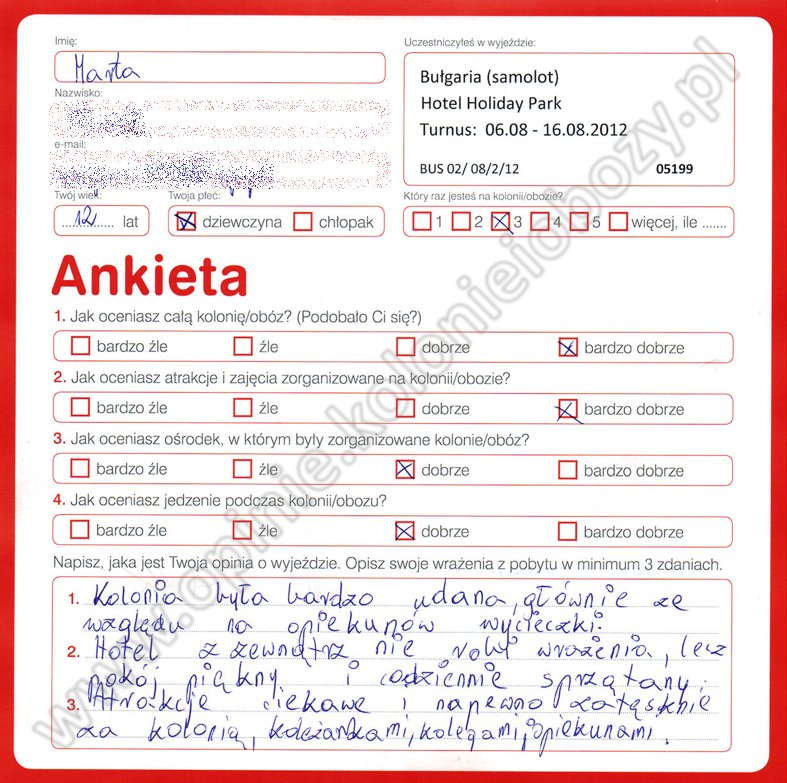 Imię:
Marta
Uczestniczyłeś w wyjeździe:
Bułgaria (samolot)
Hotel Holiday Park
Turnus: 06.08 - 16.08.2012
BUS 02/ 08/2/12 05199
Nazwisko:
e-mail:
Twój wiek:
12 lat
Twoja płeć:
dziewczyna chłopak
Który raz jesteś na kolonii/obozie?
1 2 3 4 5 więcej, ile .......
Ankieta
1. Jak oceniasz całą kolonię/obóz? (Podobało Ci się?)
bardzo źle źle dobrze bardzo dobrze
2. Jak oceniasz atrakcje i zajęcia zorganizowane na kolonii/obozie?
bardzo źle źle dobrze bardzo dobrze
3. Jak oceniasz ośrodek, w którym były zorganizowane kolonie/obóz?
bardzo źle źle dobrze bardzo dobrze
4. Jak oceniasz jedzenie podczas kolonii/obozu?
bardzo źle źle dobrze bardzo dobrze
Napisz, jaka jest Twoja opinia o wyjeździe. Opisz swoje wrażenia z pobytu w minimum 3 zdaniach.
1. Kolonia była bardzo udana, głównie ze
względu na opiekunów wycieczki.
2. Hotel z zewnątrz nie robi wrażenia, lecz
pokój piękny i codziennie sprzątany.
3. Atrakcje ciekawe i napewno zatęsknie
za kolonią, koleżankami, kolegami, opiekunami.
www.opinie.kolonieiobozy.pl